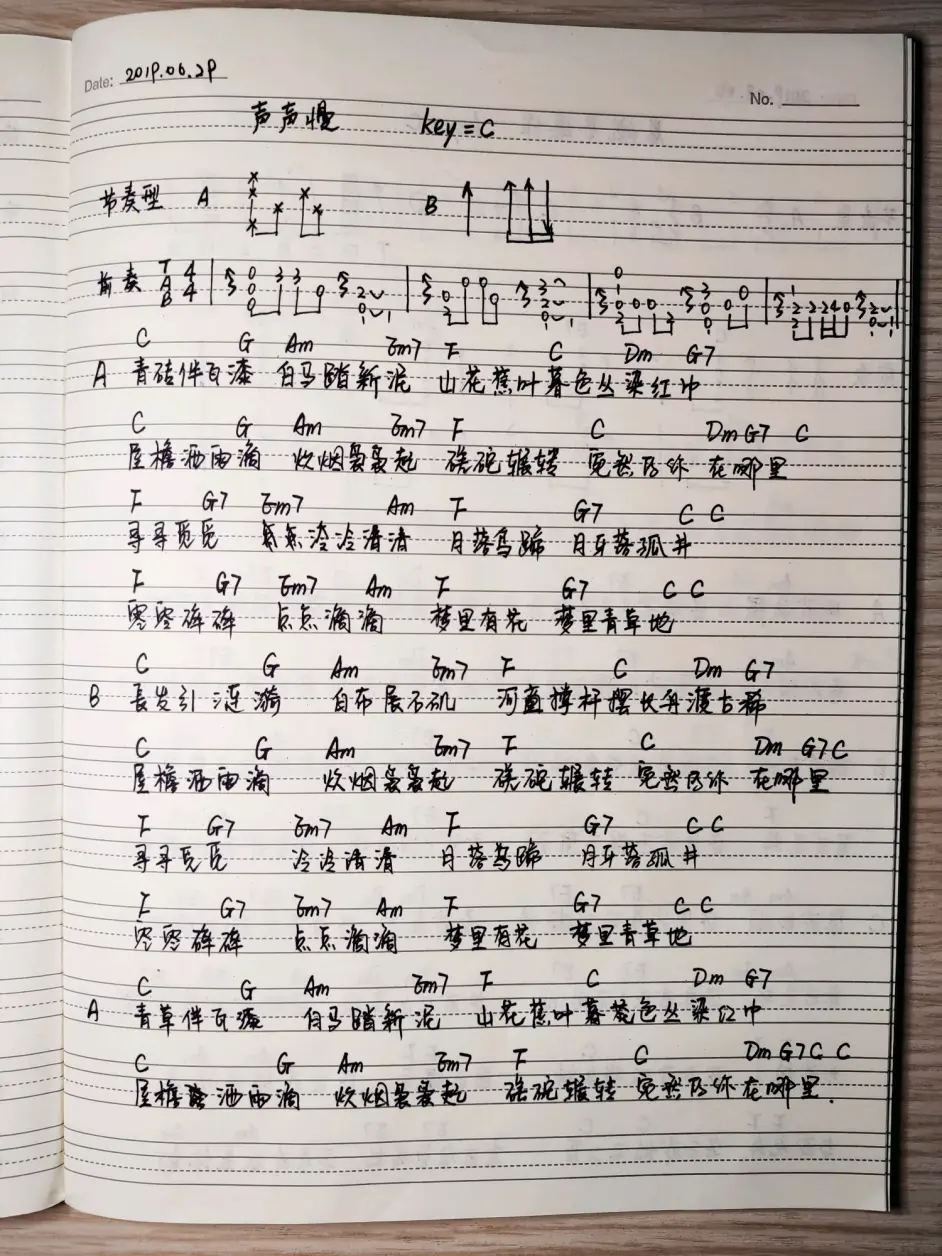 Date: 2019.06.29
No.
声声慢 key=C
节奏型 A B
前奏 TAB 4 4
C G Am Em7 F C Dm G7
A 青砖伴瓦漆 白马踏新泥 山花蕉叶暮色丛染红巾
C G Am Em7 F C Dm G7 C
屋檐洒雨滴 炊烟袅袅起 蹉跎辗转 宛然的你 在哪里
F G7 Em7 Am F G7 C C
寻寻觅觅 冷冷清清 月落乌蹄 月牙落孤井
F G7 Em7 Am F G7 C C
零零碎碎 点点滴滴 梦里有花 梦里青草地
C G Am Em7 F C Dm G7
B 長发引涟漪 白布展石矶 河直撑杆摆长舟渡古稀
C G Am Em7 F C Dm G7 C
屋檐洒雨滴 炊烟袅袅起 蹉跎辗转 宛然的你 在哪里
F G7 Em7 Am F G7 C C
寻寻觅觅 冷冷清清 月落乌蹄 月牙落孤井
F G7 Em7 Am F G7 C C
零零碎碎 点点滴滴 梦里有花 梦里青草地
C G Am Em7 F C Dm G7
A 青草伴瓦漆 白马踏新泥 山花蕉叶暮色丛染红巾
C G Am Em7 F C Dm G7 C C
屋檐洒雨滴 炊烟袅袅起 蹉跎辗转 宛然的你 在哪里.